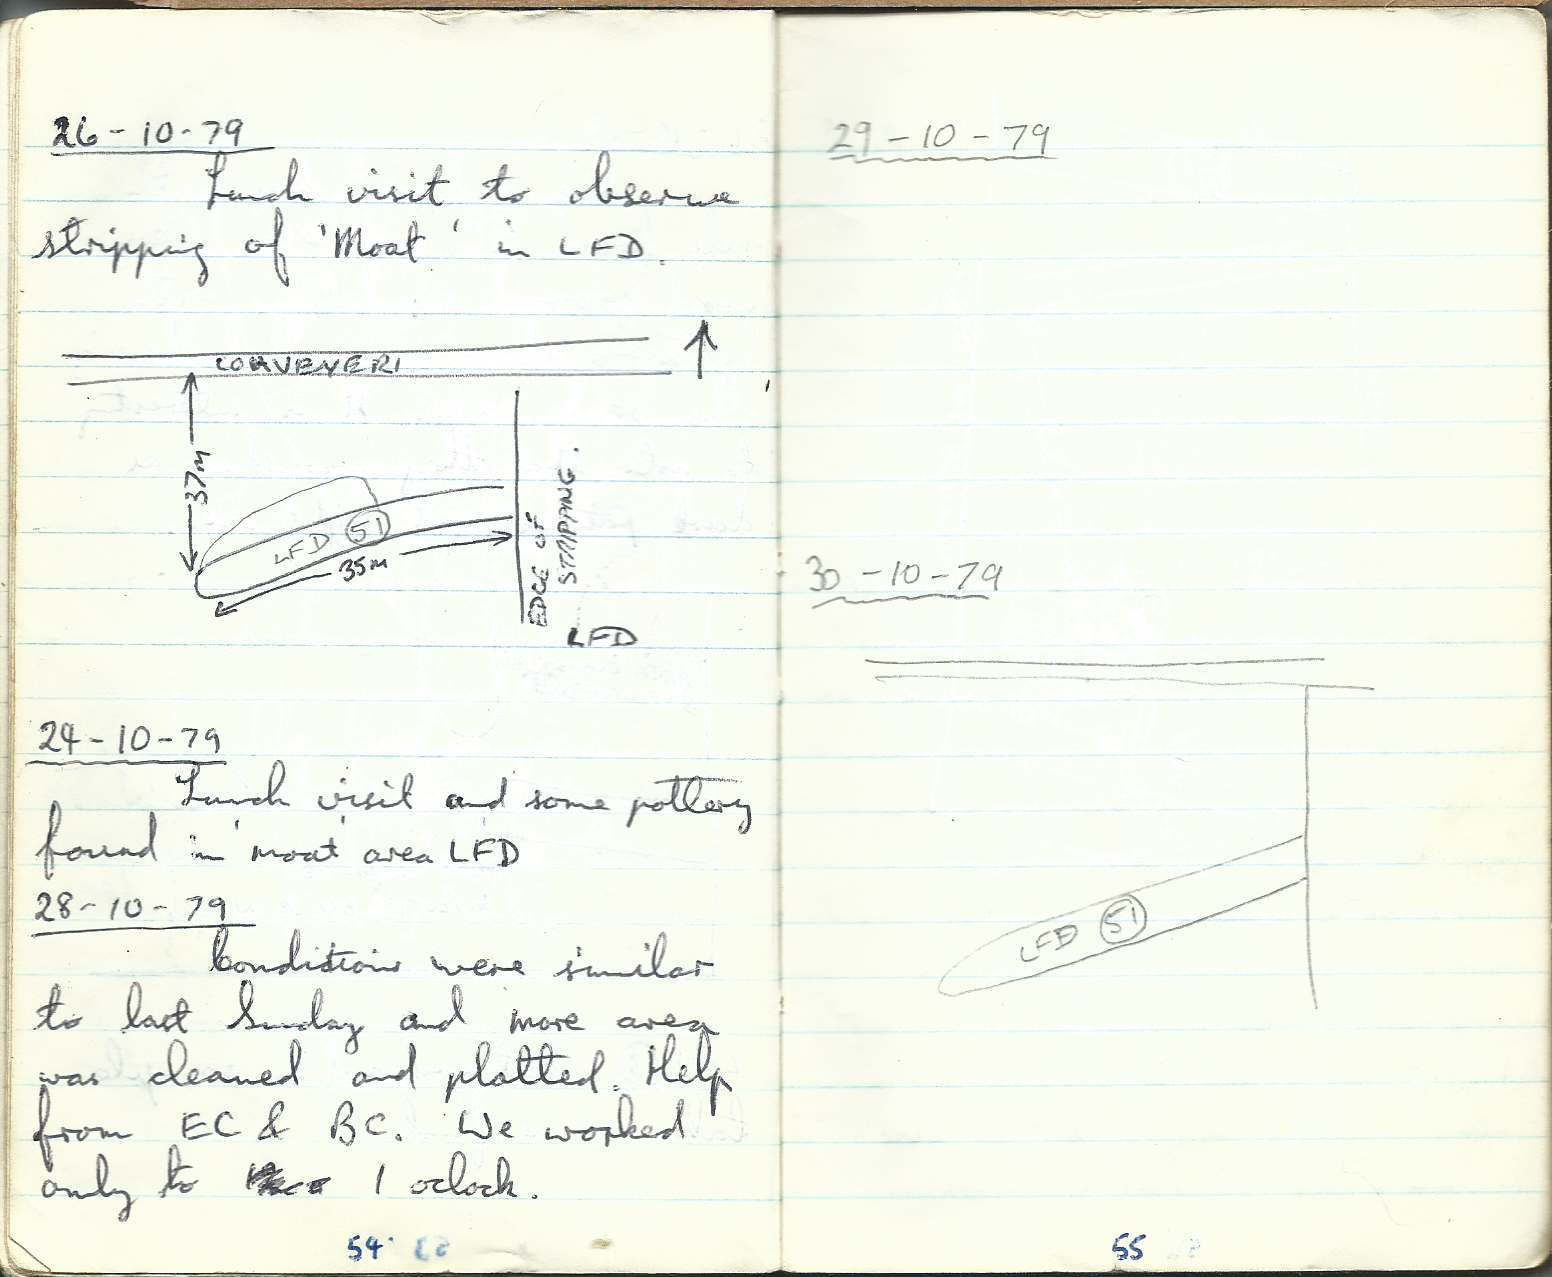 26-10-79
Lunch visit to observe
stripping of 'Moat' in LFD.
CONVEYER1
37M
LFD 51
35M
EDGE OF
STRIPPING.
LFD
24-10-79
Lunch visit and some pottery
found in 'moat' area LFD
28-10-79
Conditions were similar
to last Sunday and more area
was cleaned and plotted. Help
from EC & BC. We worked
only to 1 oclock.
54
29-10-79
30-10-79
LFD 51
55